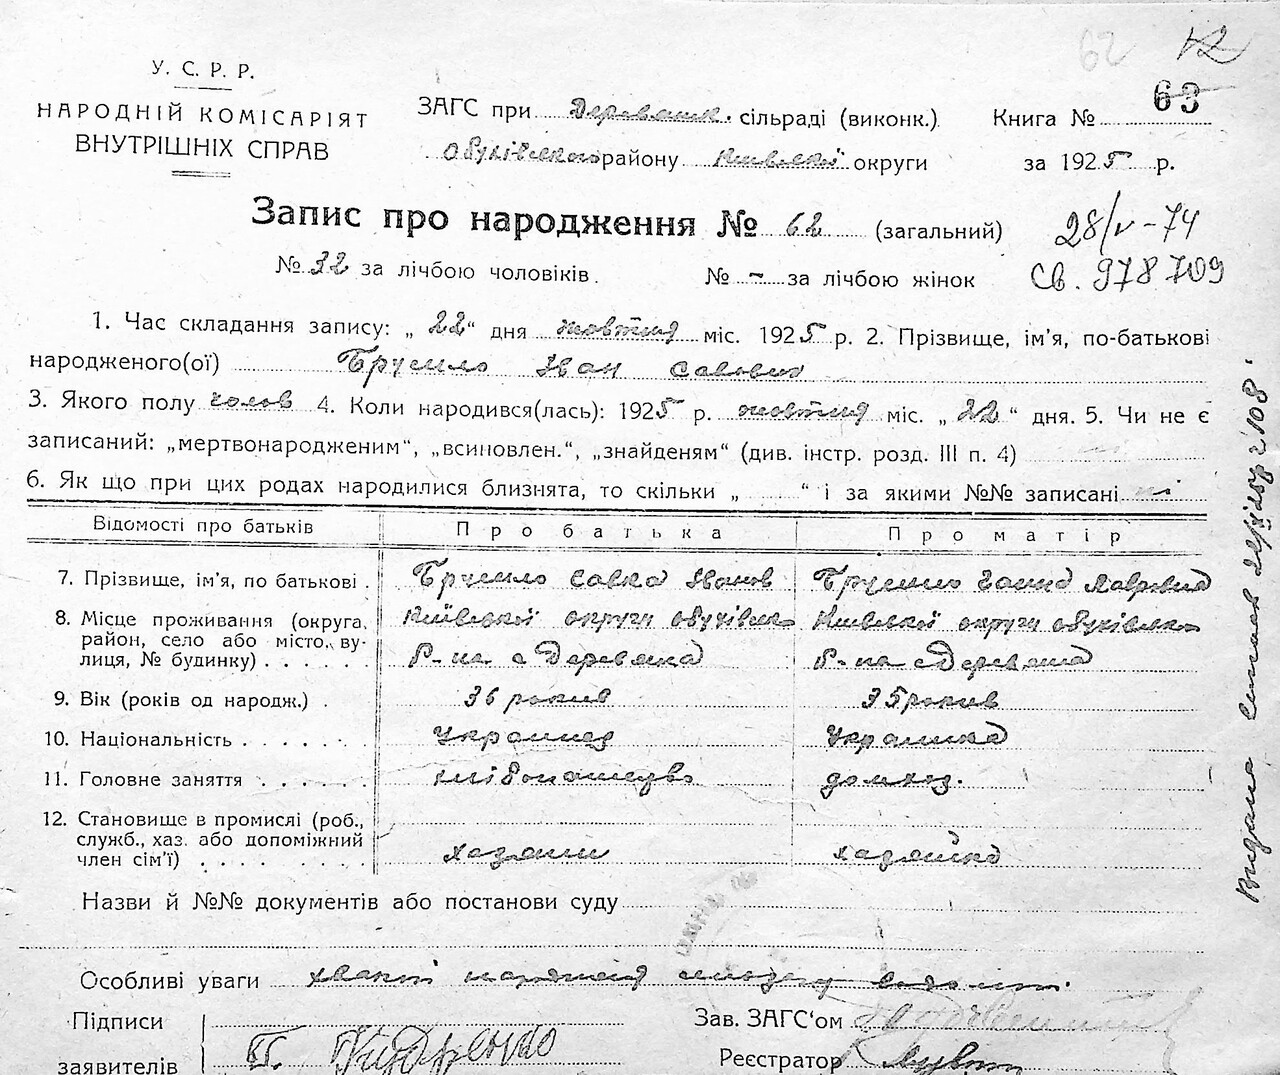 62 12
63
У. С. Р. Р.
НАРОДНІЙ КОМІСАРІЯТ
ВНУТРІШНІХ СПРАВ
ЗАГС при Деревянк. сільраді (виконк.)
Обухівського району Київської округи
Книга №
за 1925 р.
Запис про народження № 62 (загальний)
№ 32 за лічбою чоловіків. № - за лічбою жінок
28/V-74
Св. 978709
1. Час складання запису: „ 22 “ дня жовтня міс. 1925 р. 2. Прізвище, ім'я, по-батькові
народженого(ої) Брусило Іван Савович
3. Якого полу чолов 4. Коли народився(лась): 1925 р. жовтня міс. „ 22 “ дня. 5. Чи не є
записаний: „мертвонародженим“, „всиновлен.“, „знайденям“ (див. інстр. розд. III п. 4)
6. Як що при цих родах народилися близнята, то скільки „ “ і за якими №№ записані ні
Відомості про батьків Про батька Про матір
7. Прізвище, ім'я, по батькові . Брусило Савка Іванов Брусило Ганна Лавровна
8. Місце проживання (округа, Київської округи обухівськ Київської округи обухівсько
район, село або місто, ву-
лиця, № будинку) . . . . . Р-на с Деревянка Р-на с Деревянка
9. Вік (років од народж.) . 36 років 35 роков
10. Національність . . . . . . Украинец Украинка
11. Головне заняття . . . . . хлібопашество домхоз.
12. Становище в промислі (роб.,
служб., хаз. або допоміжний
член сім'ї) . . . . . . . хазяин хазяйка
Назви й №№ документів або постанови суду
Особливі уваги
Підписи
заявителів
Зав. ЗАГС'ом
Реєстратор
Видана